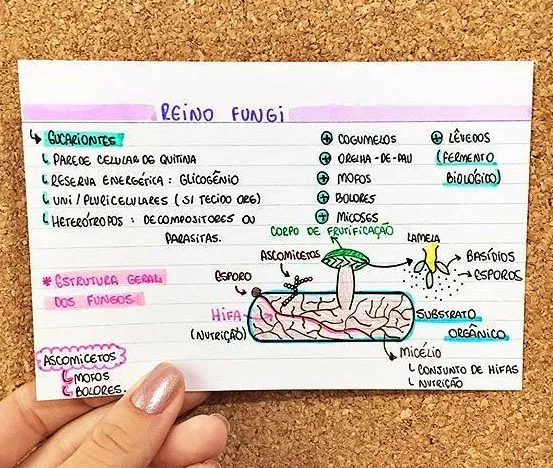 REINO FUNGI
↳ EUCARIONTES
PAREDE CELULAR DE QUITINA
RESERVA ENERGÉTICA : GLICOGÊNIO
UNI / PLURICELULARES ( S/ TECIDO ORG)
HETERÓTROFOS : DECOMPOSITORES OU
PARASITAS.
+ COGUMELOS
+ ORELHA-DE-PAU
+ MOFOS
+ BOLORES
+ MICOSES
+ LÊVEDOS
(FERMENTO
BIOLÓGICO)
* ESTRUTURA GERAL
DOS FUNGOS
CORPO DE FRUTIFICAÇÃO
ASCOMICETOS
ESPORO
HIFA
(NUTRIÇÃO)
LAMELA
BASÍDIOS
ESPOROS
SUBSTRATO
ORGÂNICO
MICÉLIO
CONJUNTO DE HIFAS
NUTRIÇÃO
ASCOMICETOS
MOFOS
BOLORES.